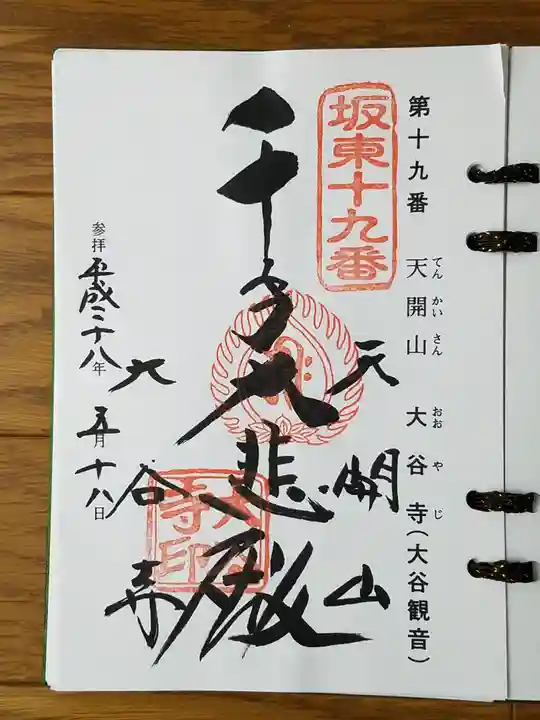 第十九番 天開山 大谷寺(大谷観音)
てん かい さん おお や じ
坂東十九番
天開山
千手大悲殿
大谷寺印
大谷寺
参拝 平成二十八年 五月十八日